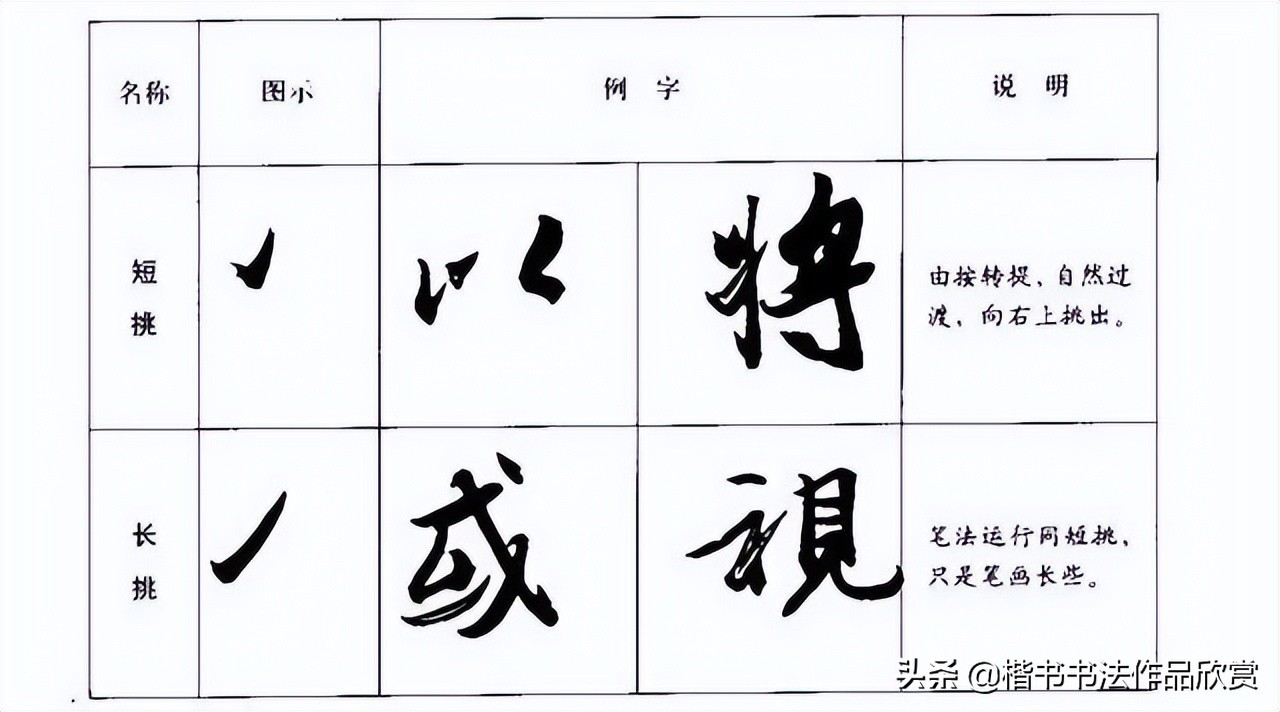 名称 图示 例 字 说 明
短挑 以 将 由按转提，自然过
渡，向右上挑出。
长挑 或 視 笔法运行同短挑，
只是笔画长些。
头条 @楷书书法作品欣赏